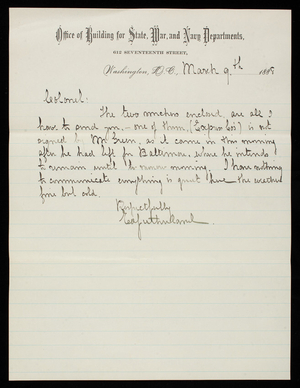 Office of Building for State, War, and Navy Departments,
612 SEVENTEENTH STREET,
Washington, D.C., March 9th 188
Colonel:
The two enclosed are all I
have to send you, - one of them, (Expense bill) is not
signed by Mr Green, as it came in this morning
after he had left for Baltimore, where he intends
to remain until morning. I have nothing
to communicate everything is quiet here the weather
fine but cold.
Respectfully